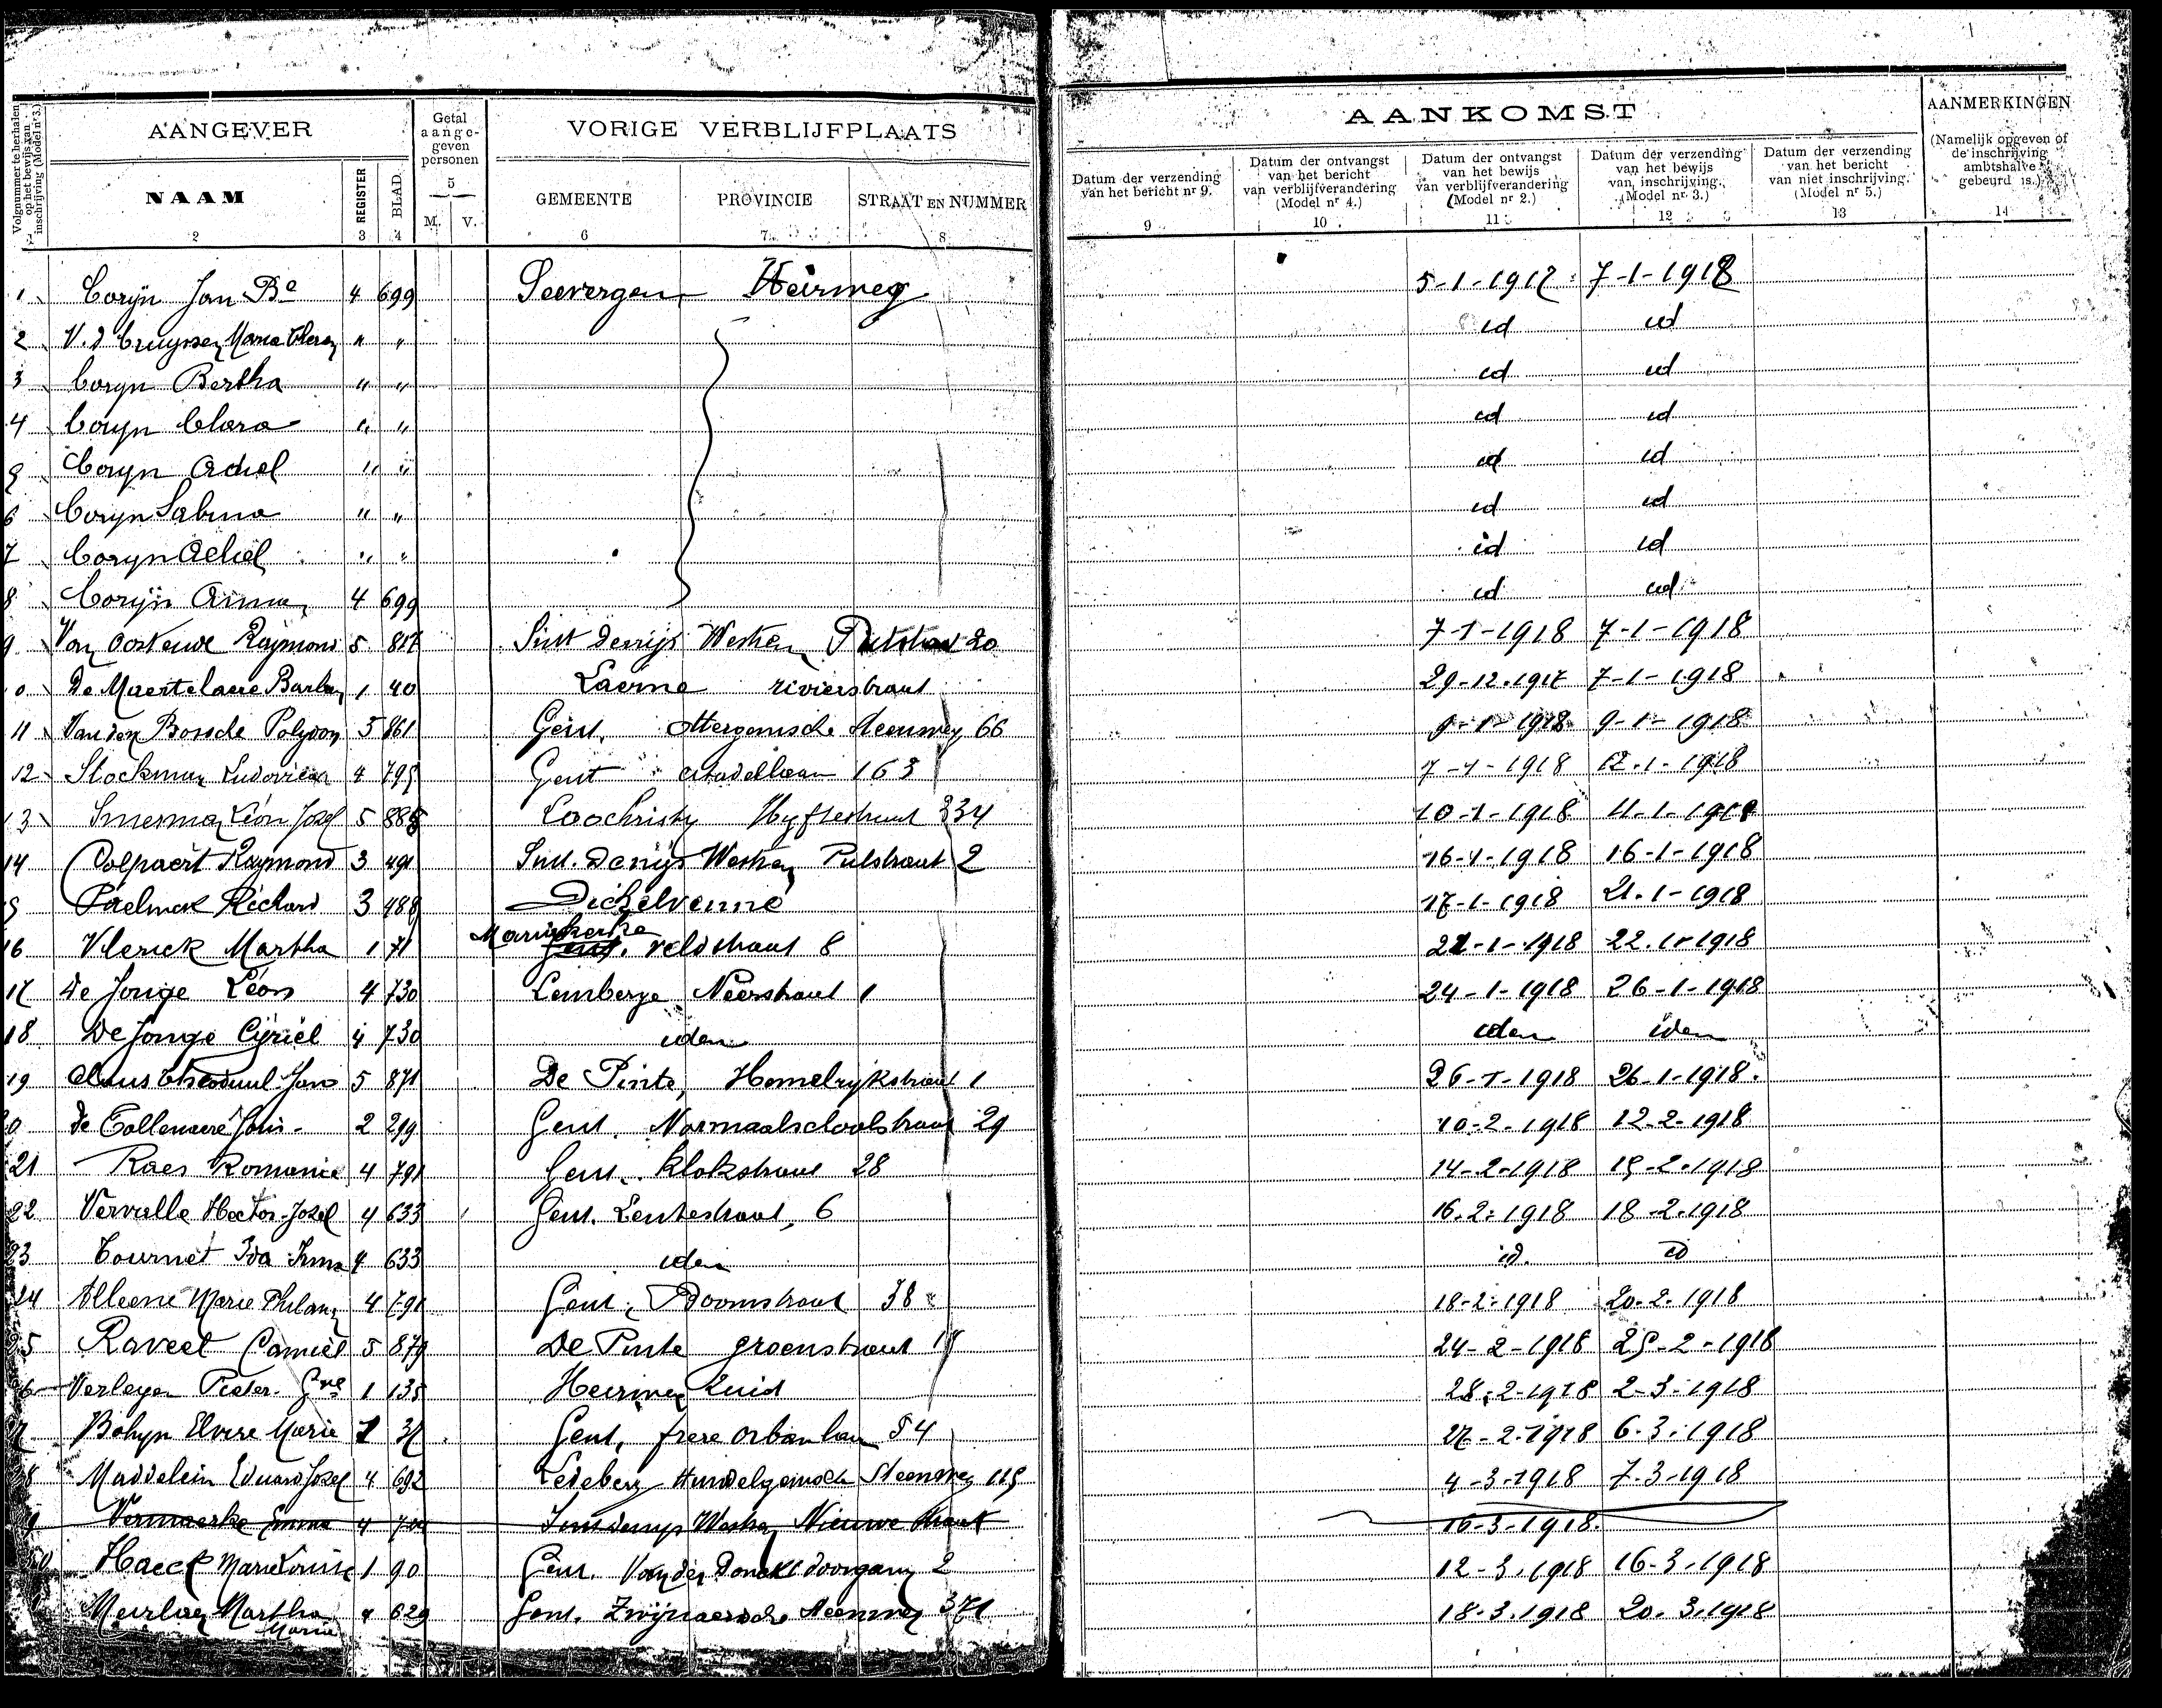 AANGEVER Getal aangegeven personen VORIGE VERBLIJFPLAATS AANKOMST AANMERKINGEN
Volgnummer te herhalen op het bewijs van inschrijving (Model nr 3.) NAAM REGISTER BLAD. M. V. GEMEENTE PROVINCIE STRAAT EN NUMMER Datum der verzending van het bericht nr 9. Datum der ontvangst van het bericht van verblijfverandering (Model nr 4.) Datum der ontvangst van het bewijs van verblijfverandering (Model nr 2.) Datum der verzending van het bewijs van inschrijving. (Model nr 3.) Datum der verzending van het bericht van niet inschrijving. (Model nr 5.) (Namelijk opgeven of de inschrijving ambtshalve gebeurd is.)
1 2 3 4 5 6 7 8 9 10 11 12 13 14
1 Coryn Jan Bte 4 699 Seevergem Heirweg 5-1-1918 7-1-1918
2 V.d Cruyssen Maria " " id id
3 Coryn Bertha " " id id
4 Coryn Clara " " id id
5 Coryn Achiel " " id id
6 Coryn Sabina " " id id
7 Coryn Achiel " " id id
8 Coryn Anna 4 699 id id
9 Van Oosteuve Raymond 5 817 Sint Denijs Westrem Putstraat 20 7-1-1918 7-1-1918
0 De Maertelaere 1 40 Laerne rivierstraat 29-12-1917 7-1-1918
11 Van den Bossche 5 861 Gent, steenweg 66 9-1-1918 9-1-1918
12 Stockman 4 795 Gent citadellaan 163 7-1-1918 12-1-1918
13 Léon Jozef 5 885 Loochristy Hyftestraat 334 10-1-1918 11-1-1918
14 Colpaert Raymond 3 491 Sint. Denijs Westrem Putstraat 2 16-1-1918 16-1-1918
5 Paelinck Richard 3 488 Dickelvenne 17-1-1918 21-1-1918
16 Vlerick Martha 1 71 Mariakerke Gent. veldstraat 8 22-1-1918 22-1-1918
17 de Jonge Léon 4 730 Lemberge Neerstraat 1 24-1-1918 26-1-1918
18 De Jonge Cyriel 4 730 idem idem idem
19 Claus Jan 5 871 De Pinte, Hemelrijkstraat 1 26-1-1918 26-1-1918
0 de Tollenaere 2 299 Gent. Normaalschoolstraat 29 10-2-1918 12-2-1918
21 Raes Romanie 4 791 Gent. Klokstraat 28 14-2-1918 15-2-1918
22 Vervalle Hector-Jozef 4 633 Gent. Lentestraat, 6 16-2-1918 18-2-1918
23 Tournet Ida Irma 4 633 idem id. id
24 Marie 4 791 Gent, Boomstraat 38 18-2-1918 20-2-1918
5 Raveel Camiel 5 879 De Pinte groenstraat 24-2-1918 25-2-1918
6 Verleyen Pieter 1 135 Heirweg Zuid 28-2-1918 2-3-1918
7 Bohyn Elvire Marie 1 37 Gent, frere orbanlaan 54 27-2-1918 6-3-1918
8 Maddelein Eduard Jozef 4 692 Ledeberg Hundelgemsche Steenweg 115 4-3-1918 7-3-1918
9 Vermaerke Emma 4 Sint denijs Westrem Nieuwe straat 16-3-1918
Haeck Marie Louise 1 90 Gent. Van der Donckt doorgang 2 12-3-1918 16-3-1918
Martha Maria 4 629 Gent. Zwijnaerdsche steenweg 371 18-3-1918 20-3-1918